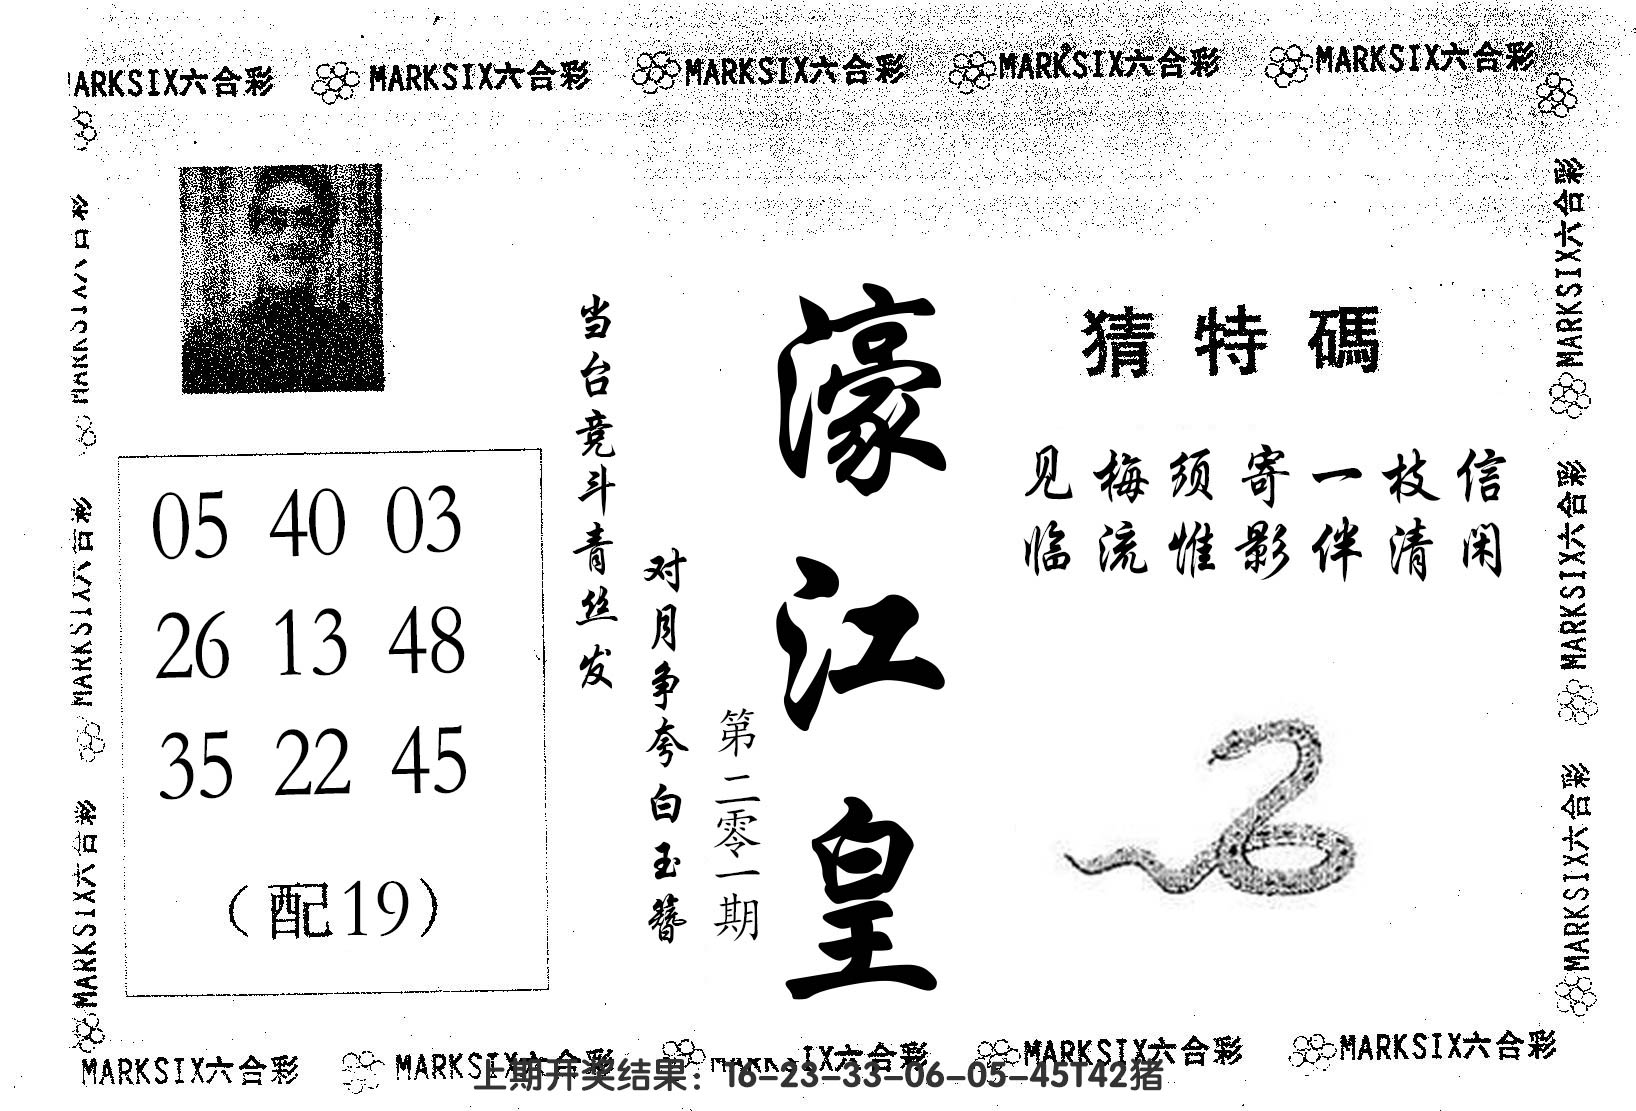 MARKSIX六合彩 MARKSIX六合彩 MARKSIX六合彩 MARKSIX六合彩 MARKSIX六合彩
猜特碼
见梅须寄一枝信
临流惟影伴清闲
濠江皇
第二零一期
对月争夸白玉簪
当台竞斗青丝发
05 40 03
26 13 48
35 22 45
（配19）
MARKSIX六合彩
MARKSIX六合彩
MARKSIX六合彩
MARKSIX六合彩
MARKSIX六合彩
MARKSIX六合彩
MARKSIX六合彩 MARKSIX六合彩 MARKSIX六合彩 MARKSIX六合彩 MARKSIX六合彩
上期开奖结果：16-23-33-06-05-45T42猪